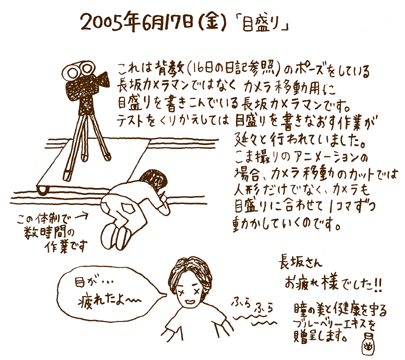 2005年6月17日(金)「目盛り」
これは背教(16日の日記参照)のポーズをしている
長坂カメラマンではなく カメラ移動用に
目盛りを書きこんでいる長坂カメラマンです。
テストをくりかえしては 目盛りを書きなおす作業が
延々と行われていました。
こま撮りのアニメーションの
場合、カメラ移動のカットでは
人形だけでなく、カメラも
目盛りに合わせて1コマずつ
動かしていくのです。
この体制で→
数時間の
作業です
目が…
疲れたよ〜
ふら
ふら
長坂さん
お疲れ様でした!!
瞳の美と健康を守る
ブルーベリーエキスを
贈呈します。